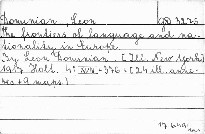 Dominian, Leon
The frontiers of language and na-
tionality in Europe.
By Leon Dominian. (Ill. New York)
1917 Holt. 4° XVIII-376
+9 maps)